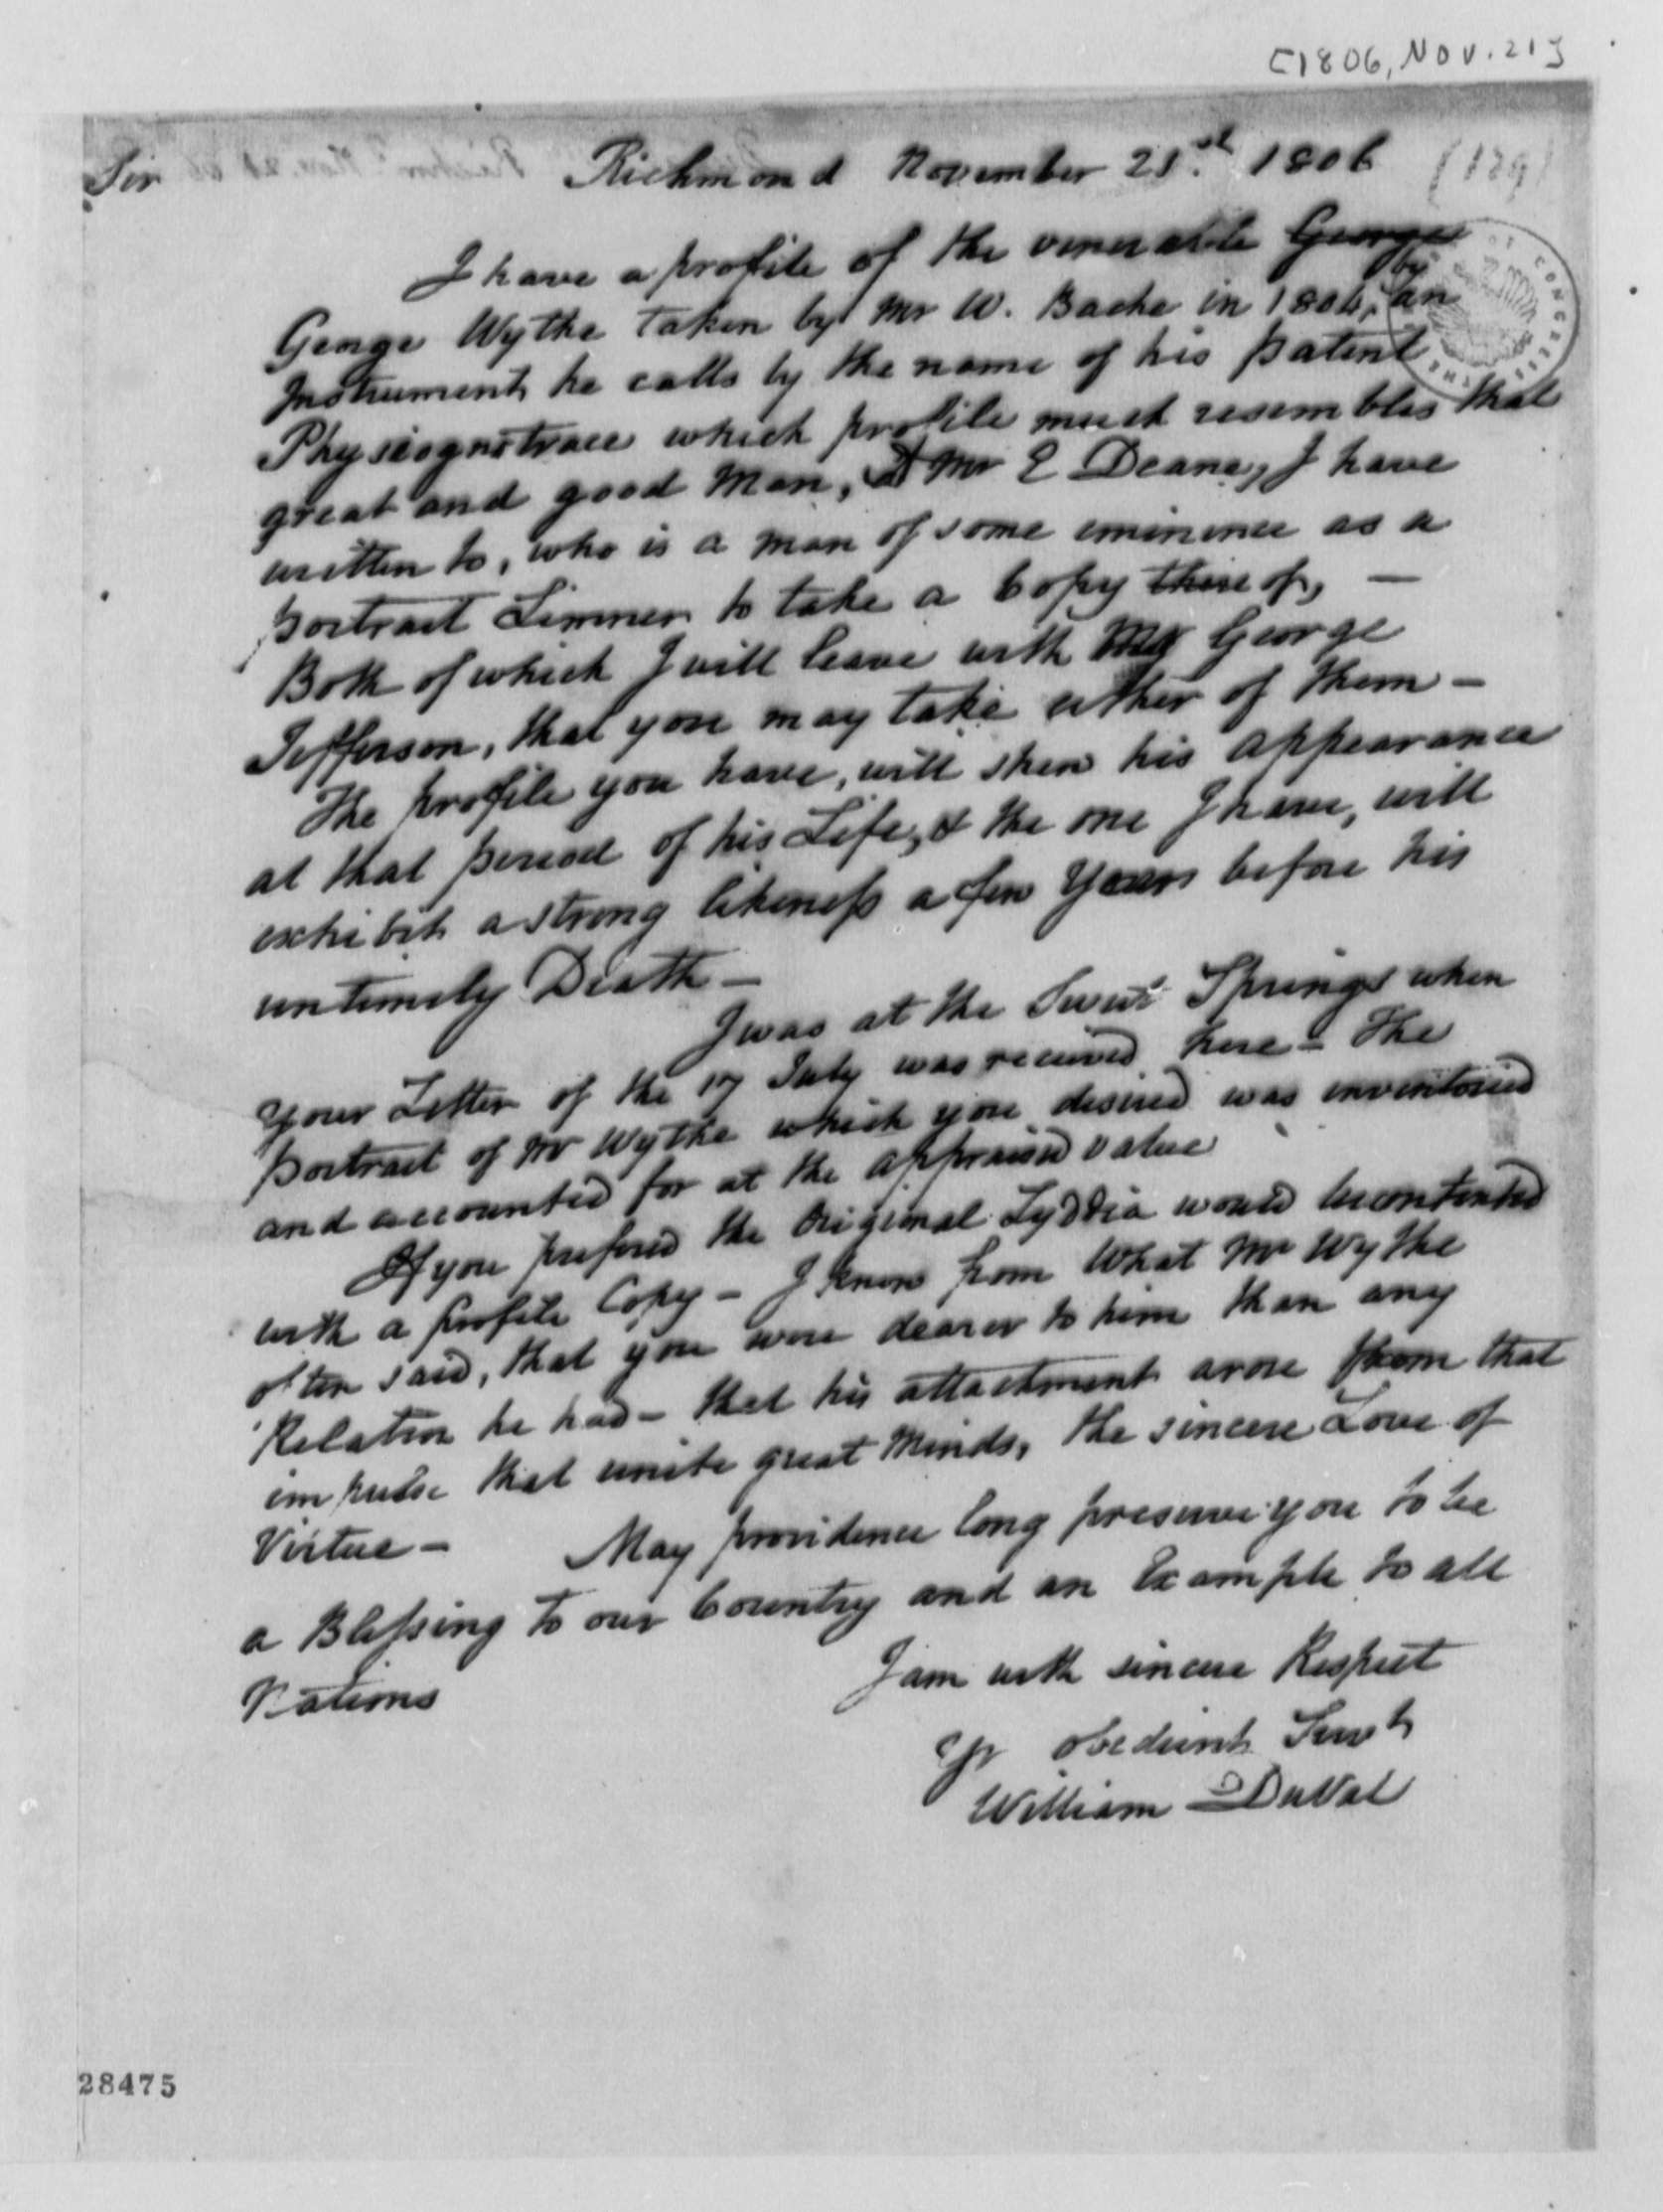 [1806, Nov. 21]
Sir Richmond November 21.st 1806 (129)
I have a profile of the venerable George
George Wythe taken by Mr W. Bache in 1804, by an
Instrument he calls by the name of his patent
Physiognotrace which profile much resembles that
great and good Man, & Mr E Deane, I have
written to, who is a man of some eminence as a
portrait Limner to take a Copy thereof, —
Both of which I will leave with Mr George
Jefferson, that you may take either of them —
The profile you have, will shew his appearance
at that period of his Life, & the one I have, will
exhibit a strong likeness a few Years before his
untimely Death —
I was at the Sweet Springs when
your Letter of the 17 July was received here — The
portrait of Mr Wythe which you desired was inventoried
and accounted for at the appraised value
If you prefered the Original Lyddia would be contented
with a profile Copy — I know from What Mr Wythe
often said, that you were dearer to him than any
Relation he had — that his attachment arose from that
impulse that unite great Minds, the sincere Love of
Virtue — May providence long preserve you to be
a Blessing to our Country and an Example to all
Nations I am with sincere Respect
Yr obedient Servt
William DuVal
28475